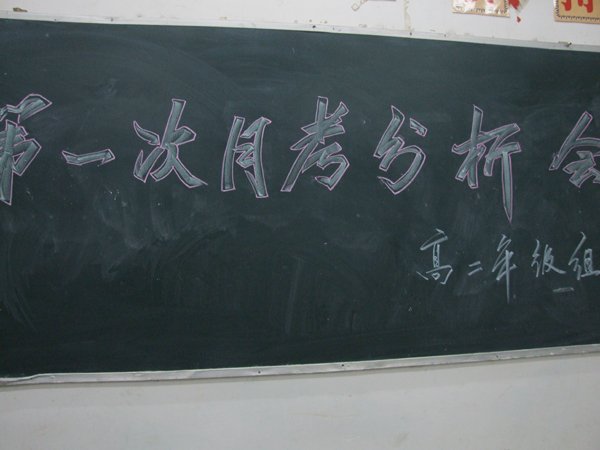 第一次月考分析会
高二年级组